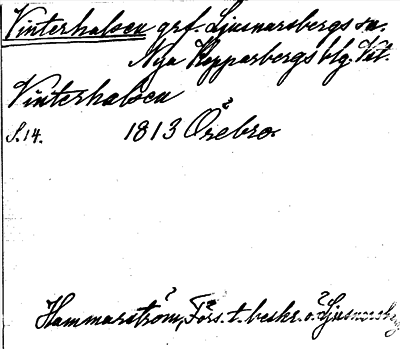 Vinterhalsen grf. Ljusnarsbergs sn.
Nya Kopparbergs blg. Väst.
Vinterhalsen
S. 14. 1813 Örebro
Hammarström, Förs. t. beskr. ö. Ljusnarsberg